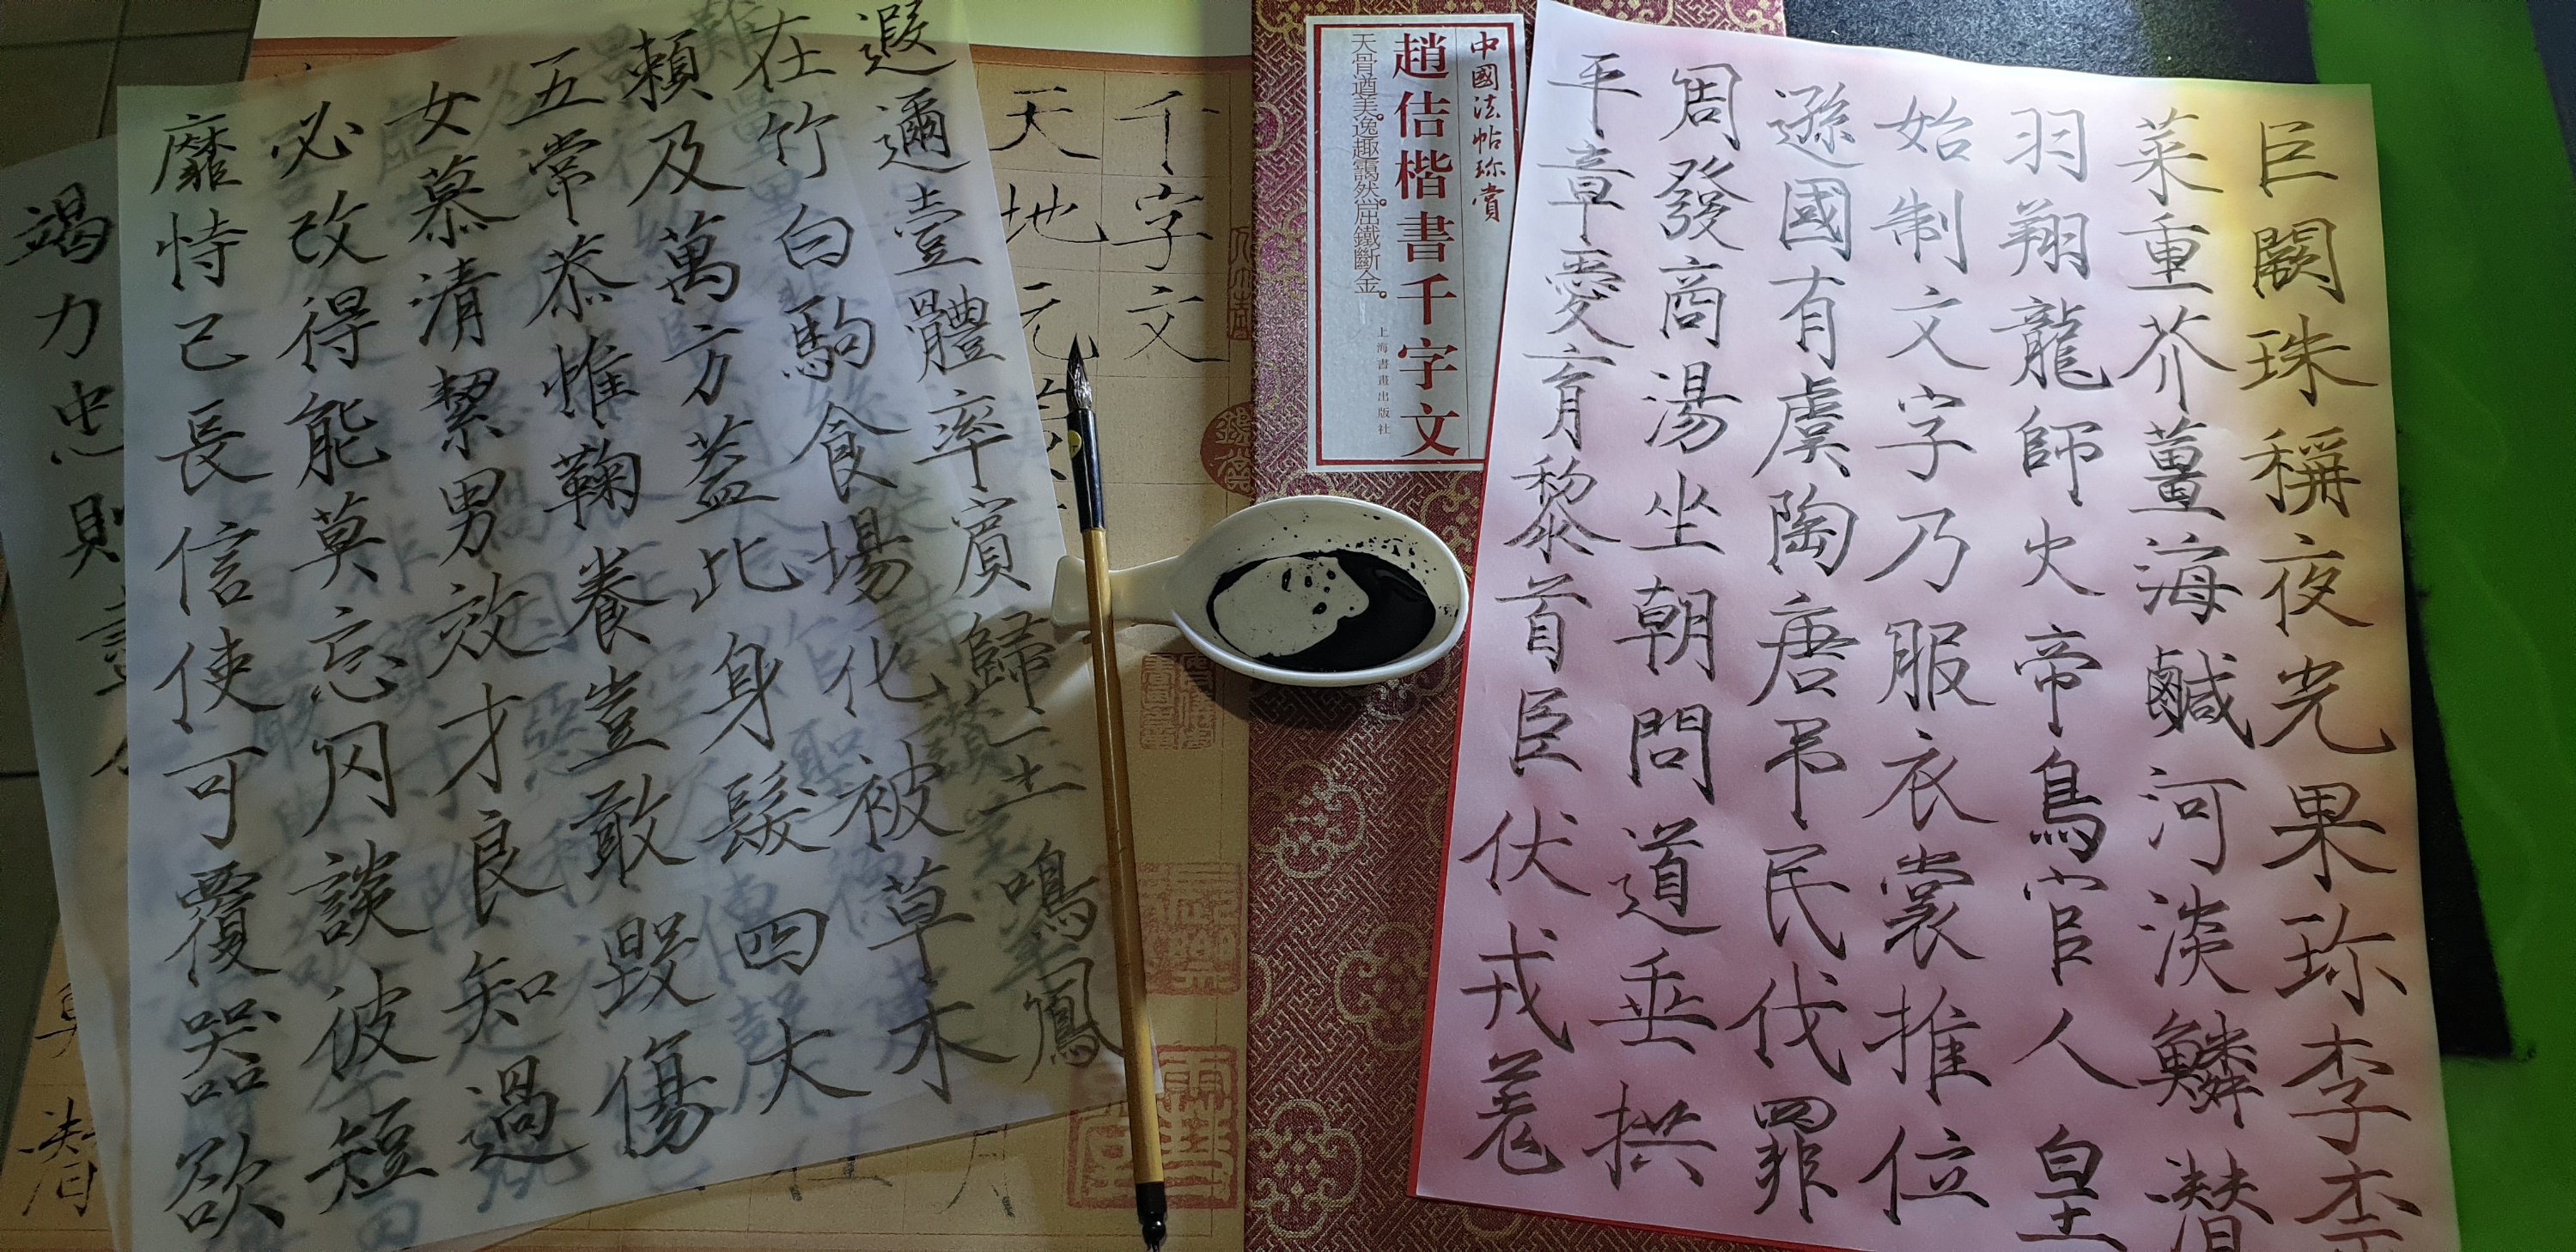 巨闕珠稱夜光果珍李柰
菜重芥薑海鹹河淡鱗潛
羽翔龍師火帝鳥官人皇
始制文字乃服衣裳推位
遜國有虞陶唐弔民伐罪
周發商湯坐朝問道垂拱
平章愛育黎首臣伏戎羌
中國法帖珍賞
趙佶楷書千字文
天骨遒美。逸趣靄然。屈鐵斷金。
上海書畫出版社
千字文
天地元
遐邇壹體率賓歸王鳴鳳
在竹白駒食場化被草木
賴及萬方蓋此身髮四大
五常恭惟鞠養豈敢毀傷
女慕清絜男效才良知過
必改得能莫忘罔談彼短
靡恃己長信使可覆器欲
竭力忠則盡